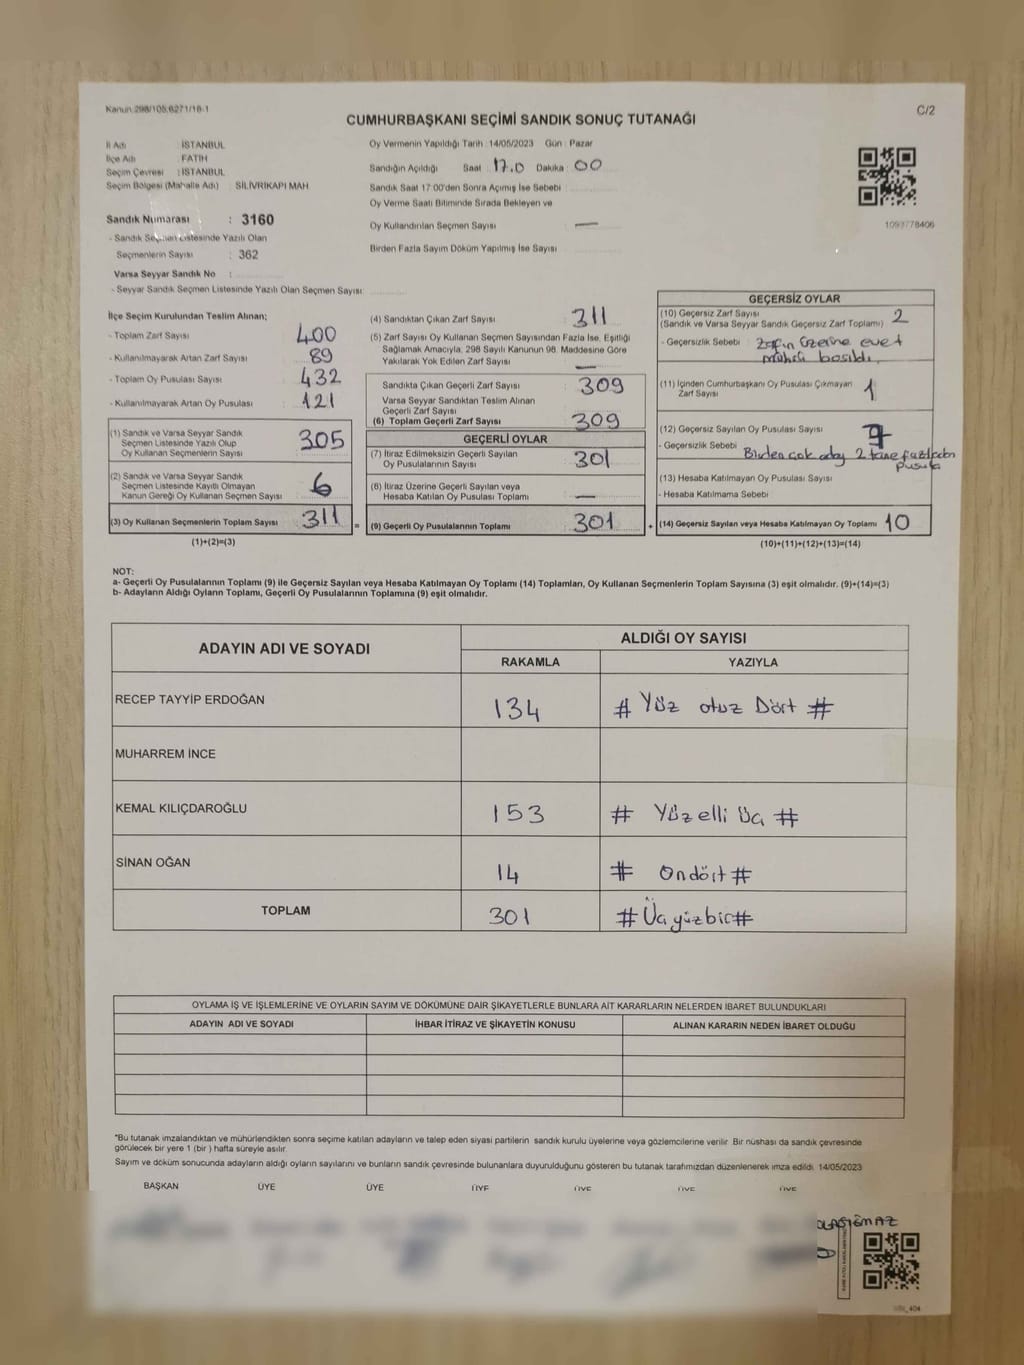 Kanun 298/105,6271/18-1
C/2
CUMHURBAŞKANI SEÇİMİ SANDIK SONUÇ TUTANAĞI
İl Adı : İSTANBUL
İlçe Adı : FATİH
Seçim Çevresi : İSTANBUL
Seçim Bölgesi (Mahalle Adı) : SİLİVRİKAPI MAH
Sandık Numarası : 3160
- Sandık Seçmen Listesinde Yazılı Olan
Seçmenlerin Sayısı : 362
Varsa Seyyar Sandık No :
- Seyyar Sandık Seçmen Listesinde Yazılı Olan Seçmen Sayısı:
Oy Vermenin Yapıldığı Tarih : 14/05/2023 Gün : Pazar
Sandığın Açıldığı Saat 17.0 Dakika : 00
Sandık Saat 17:00'den Sonra Açımış İse Sebebi
Oy Verme Saati Bitiminde Sırada Bekleyen ve
Oy Kullandırılan Seçmen Sayısı : —
Birden Fazla Sayım Döküm Yapılmış İse Sayısı :
1093778406
İlçe Seçim Kurulundan Teslim Alınan;
- Toplam Zarf Sayısı : 400
- Kullanılmayarak Artan Zarf Sayısı : 89
- Toplam Oy Pusulası Sayısı : 432
- Kullanılmayarak Artan Oy Pusulası : 121
(1) Sandık ve Varsa Seyyar Sandık
Seçmen Listesinde Yazılı Olup
Oy Kullanan Seçmenlerin Sayısı : 305
(2) Sandık ve Varsa Seyyar Sandık
Seçmen Listesinde Kayıtlı Olmayan
Kanun Gereği Oy Kullanan Seçmen Sayısı : 6
(3) Oy Kullanan Seçmenlerin Toplam Sayısı : 311 =
(1)+(2)=(3)
(4) Sandıktan Çıkan Zarf Sayısı : 311
(5) Zarf Sayısı Oy Kullanan Seçmen Sayısından Fazla İse, Eşitliği
Sağlamak Amacıyla, 298 Sayılı Kanunun 98. Maddesine Göre
Yakılarak Yok Edilen Zarf Sayısı : —
Sandıkta Çıkan Geçerli Zarf Sayısı : 309
Varsa Seyyar Sandıktan Teslim Alınan
Geçerli Zarf Sayısı
(6) Toplam Geçerli Zarf Sayısı : 309
GEÇERLİ OYLAR
(7) İtiraz Edilmeksizin Geçerli Sayılan
Oy Pusulalarının Sayısı : 301
(8) İtiraz Üzerine Geçerli Sayılan veya
Hesaba Katılan Oy Pusulası Toplamı : —
(9) Geçerli Oy Pusulalarının Toplamı : 301 +
GEÇERSİZ OYLAR
(10) Geçersiz Zarf Sayısı
(Sandık ve Varsa Seyyar Sandık Geçersiz Zarf Toplamı) : 2
- Geçersizlik Sebebi : Zarfın üzerine evet
mührü basıldı.
(11) İçinden Cumhurbaşkanı Oy Pusulası Çıkmayan
Zarf Sayısı : 1
(12) Geçersiz Sayılan Oy Pusulası Sayısı : 7
- Geçersizlik Sebebi : Birden çok aday 2 tane fazladan
pusula
(13) Hesaba Katılmayan Oy Pusulası Sayısı
- Hesaba Katılmama Sebebi
(14) Geçersiz Sayılan veya Hesaba Katılmayan Oy Toplamı : 10
(10)+(11)+(12)+(13)=(14)
NOT:
a- Geçerli Oy Pusulalarının Toplamı (9) ile Geçersiz Sayılan veya Hesaba Katılmayan Oy Toplamı (14) Toplamları, Oy Kullanan Seçmenlerin Toplam Sayısına (3) eşit olmalıdır. (9)+(14)=(3)
b- Adayların Aldığı Oyların Toplamı, Geçerli Oy Pusulalarının Toplamına (9) eşit olmalıdır.
ADAYIN ADI VE SOYADI
ALDIĞI OY SAYISI
RAKAMLA YAZIYLA
RECEP TAYYİP ERDOĞAN 134 # Yüz otuz Dört #
MUHARREM İNCE
KEMAL KILIÇDAROĞLU 153 # Yüz elli Üç #
SİNAN OĞAN 14 # Ondört #
TOPLAM 301 # Üçyüzbir #
OYLAMA İŞ VE İŞLEMLERİNE VE OYLARIN SAYIM VE DÖKÜMÜNE DAİR ŞİKAYETLERLE BUNLARA AİT KARARLARIN NELERDEN İBARET BULUNDUKLARI
ADAYIN ADI VE SOYADI İHBAR İTİRAZ VE ŞİKAYETİN KONUSU ALINAN KARARIN NEDEN İBARET OLDUĞU
"Bu tutanak imzalandıktan ve mühürlendikten sonra seçime katılan adayların ve talep eden siyasi partilerin sandık kurulu üyelerine veya gözlemcilerine verilir. Bir nüshası da sandık çevresinde
görülecek bir yere 1 (bir ) hafta süreyle asılır.
Sayım ve döküm sonucunda adayların aldığı oyların sayılarını ve bunların sandık çevresinde bulunanlara duyurulduğunu gösteren bu tutanak tarafımızdan düzenlenerek imza edildi. 14/05/2023
BAŞKAN ÜYE ÜYE ÜYE ÜYE ÜYE ÜYE